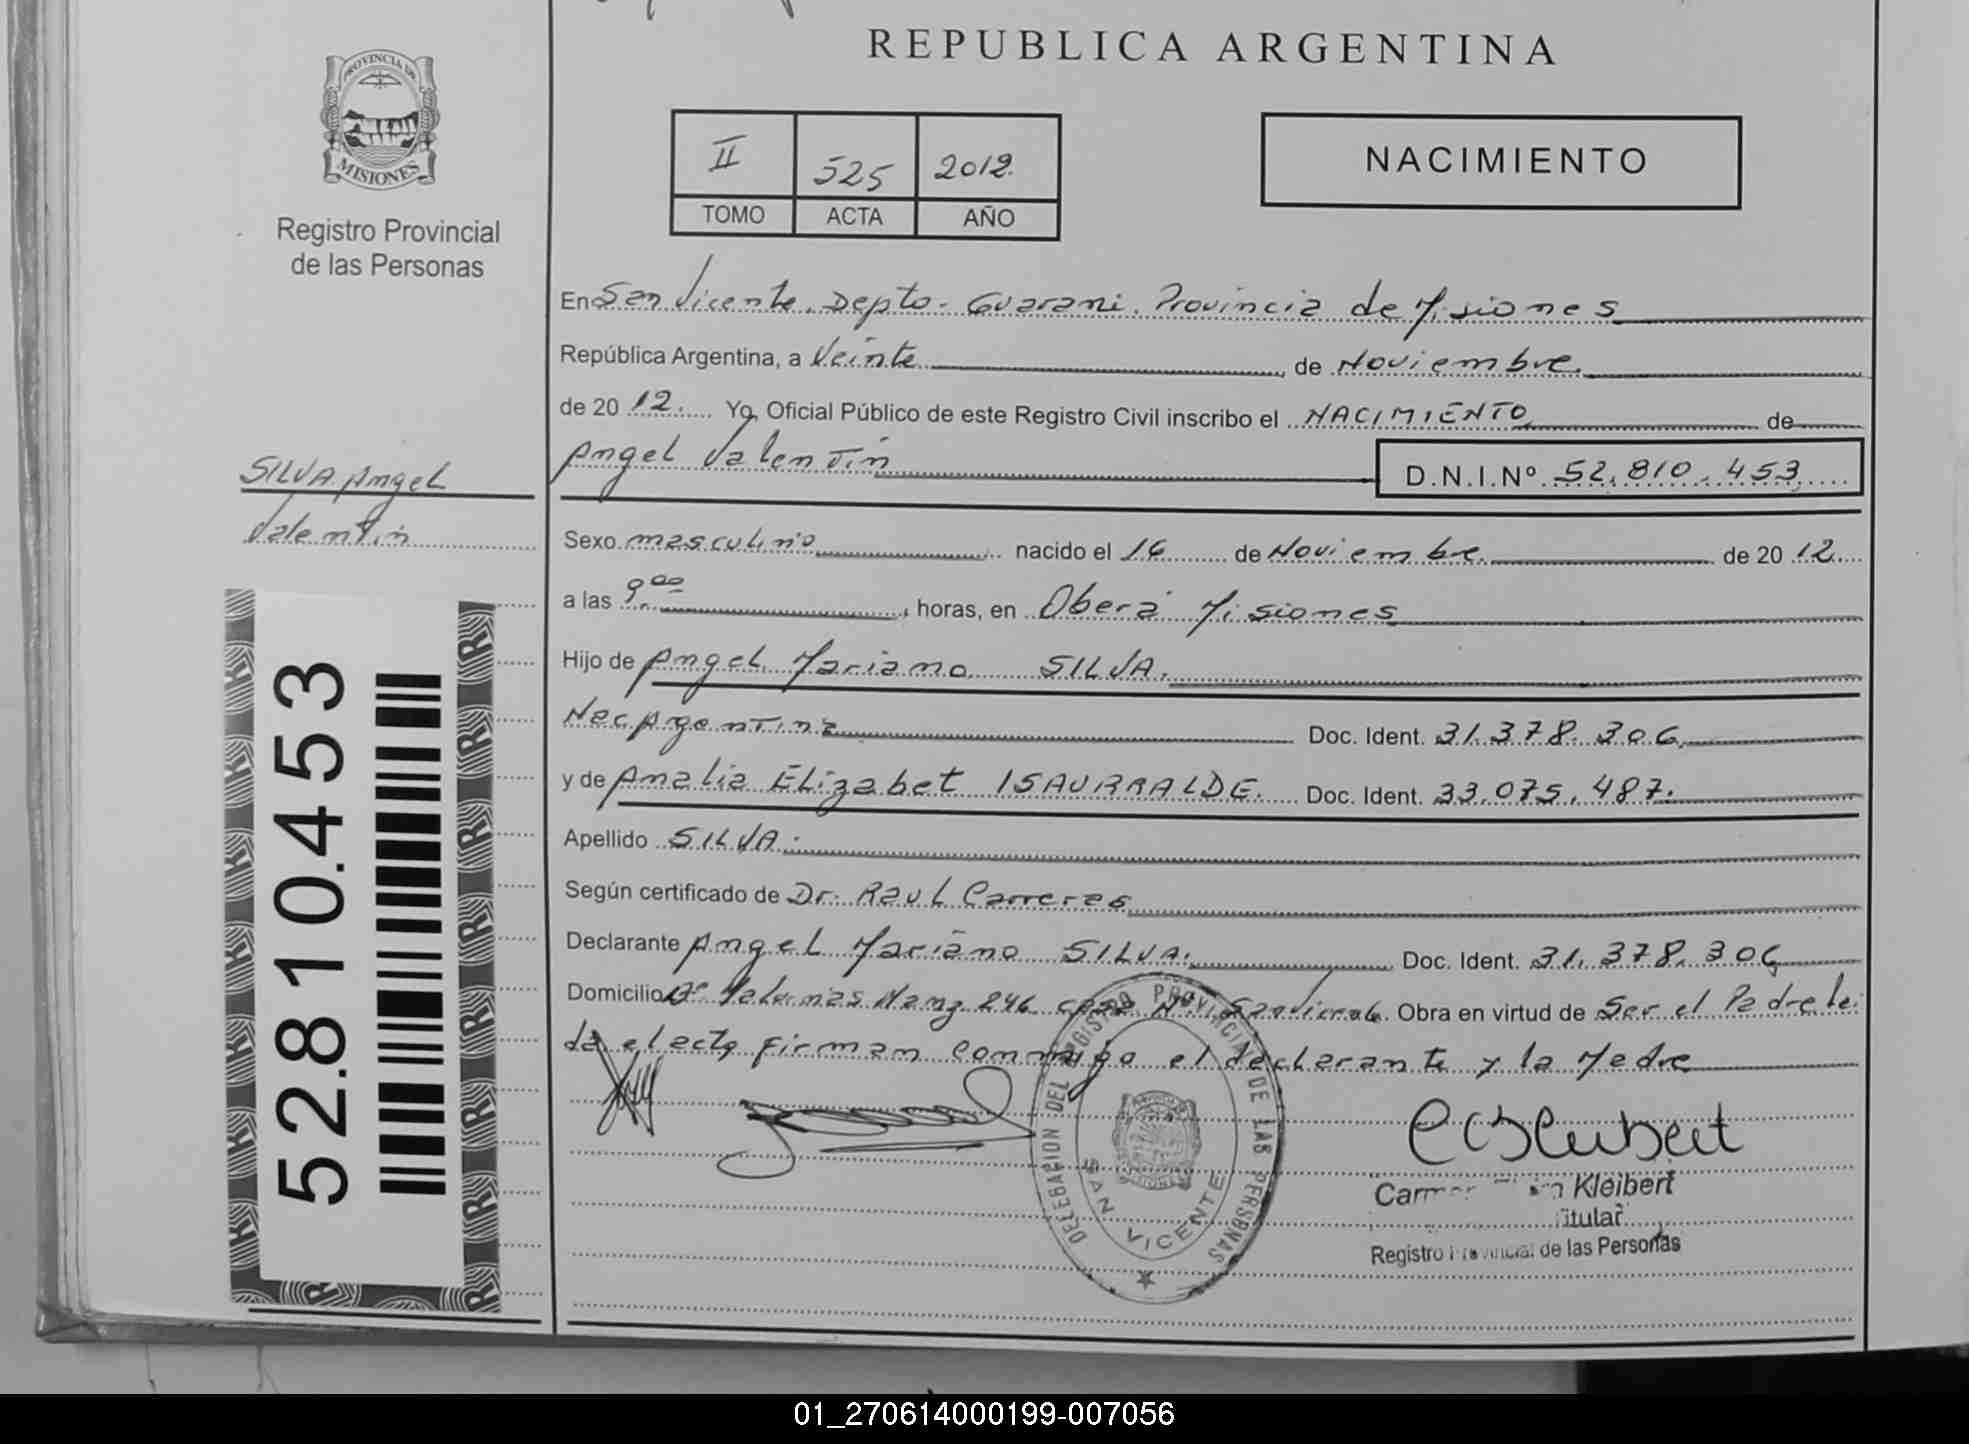 REPUBLICA ARGENTINA
PROVINCIA DE
MISIONES
Registro Provincial
de las Personas
II 525 2012.
TOMO ACTA AÑO
NACIMIENTO
En San Vicente. Depto- Guarani. Provincia de Misiones
República Argentina, a Veinte de Noviembre.
de 20 12. Yo, Oficial Público de este Registro Civil inscribo el NACIMIENTO de
Angel Valentin D.N.I.Nº 52.810.453
SILVA Angel
Valentin
Sexo masculino nacido el 16 de Noviembre. de 20 12
a las 9 00 horas, en Oberá Misiones
Hijo de Angel Mariano SILVA.
Nac Argentina Doc. Ident. 31.378.306
y de Analia Elizabet ISAURRALDE. Doc. Ident. 33.075.487.
Apellido SILVA.
Según certificado de Dr. Raul Carreras
Declarante Angel Mariano SILVA. Doc. Ident. 31.378.306
Domicilio Manz 246 San Vicente. Obra en virtud de Ser el Padre lei
da el acta firman conmigo el declarante y la Madre
52.810.453
DELEGACION DEL REGISTRO PROVINCIAL DE LAS PERSONAS
SAN VICENTE
Kleibert
Titular
Registro Provincial de las Personas
01_270614000199-007056